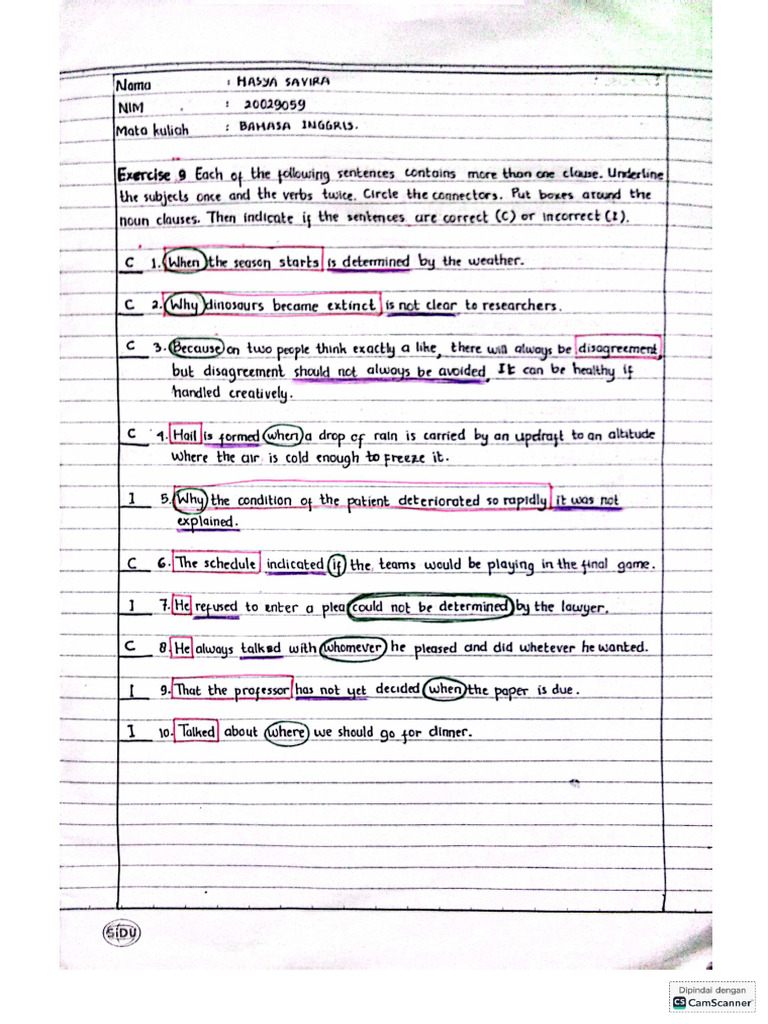 Nama : HASYA SAVIRA
NIM : 20029059
Mata kuliah : BAHASA INGGRIS.
Exercise 9 Each of the following sentences contains more than one clause. Underline
the subjects once and the verbs twice. Circle the connectors. Put boxes around the
noun clauses. Then indicate if the sentences are correct (C) or incorrect (I).
C 1. When the season starts is determined by the weather.
C 2. Why dinosaurs became extinct is not clear to researchers.
C 3. Because on two people think exactly a like, there will always be disagreement,
but disagreement should not always be avoided, It can be healthy if
handled creatively.
C 4. Hail is formed when a drop of rain is carried by an updraft to an altitude
where the air is cold enough to freeze it.
I 5. Why the condition of the patient deteriorated so rapidly it was not
explained.
C 6. The schedule indicated if the teams would be playing in the final game.
I 7. He refused to enter a plea could not be determined by the lawyer.
C 8. He always talked with whomever he pleased and did whatever he wanted.
I 9. That the professor has not yet decided when the paper is due.
I 10. Talked about where we should go for dinner.
SiDU
Dipindai dengan
CS CamScanner